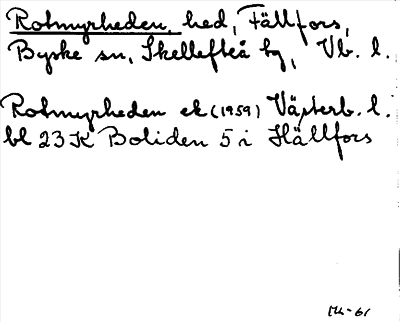 Rotmyrheden, hed, Fällfors,
Byske sn, Skellefteå kg, Vb. l.
Rotmyrheden ek (1959) Västerb. l.
bl 23 K Boliden 5 i Hällfors
-61